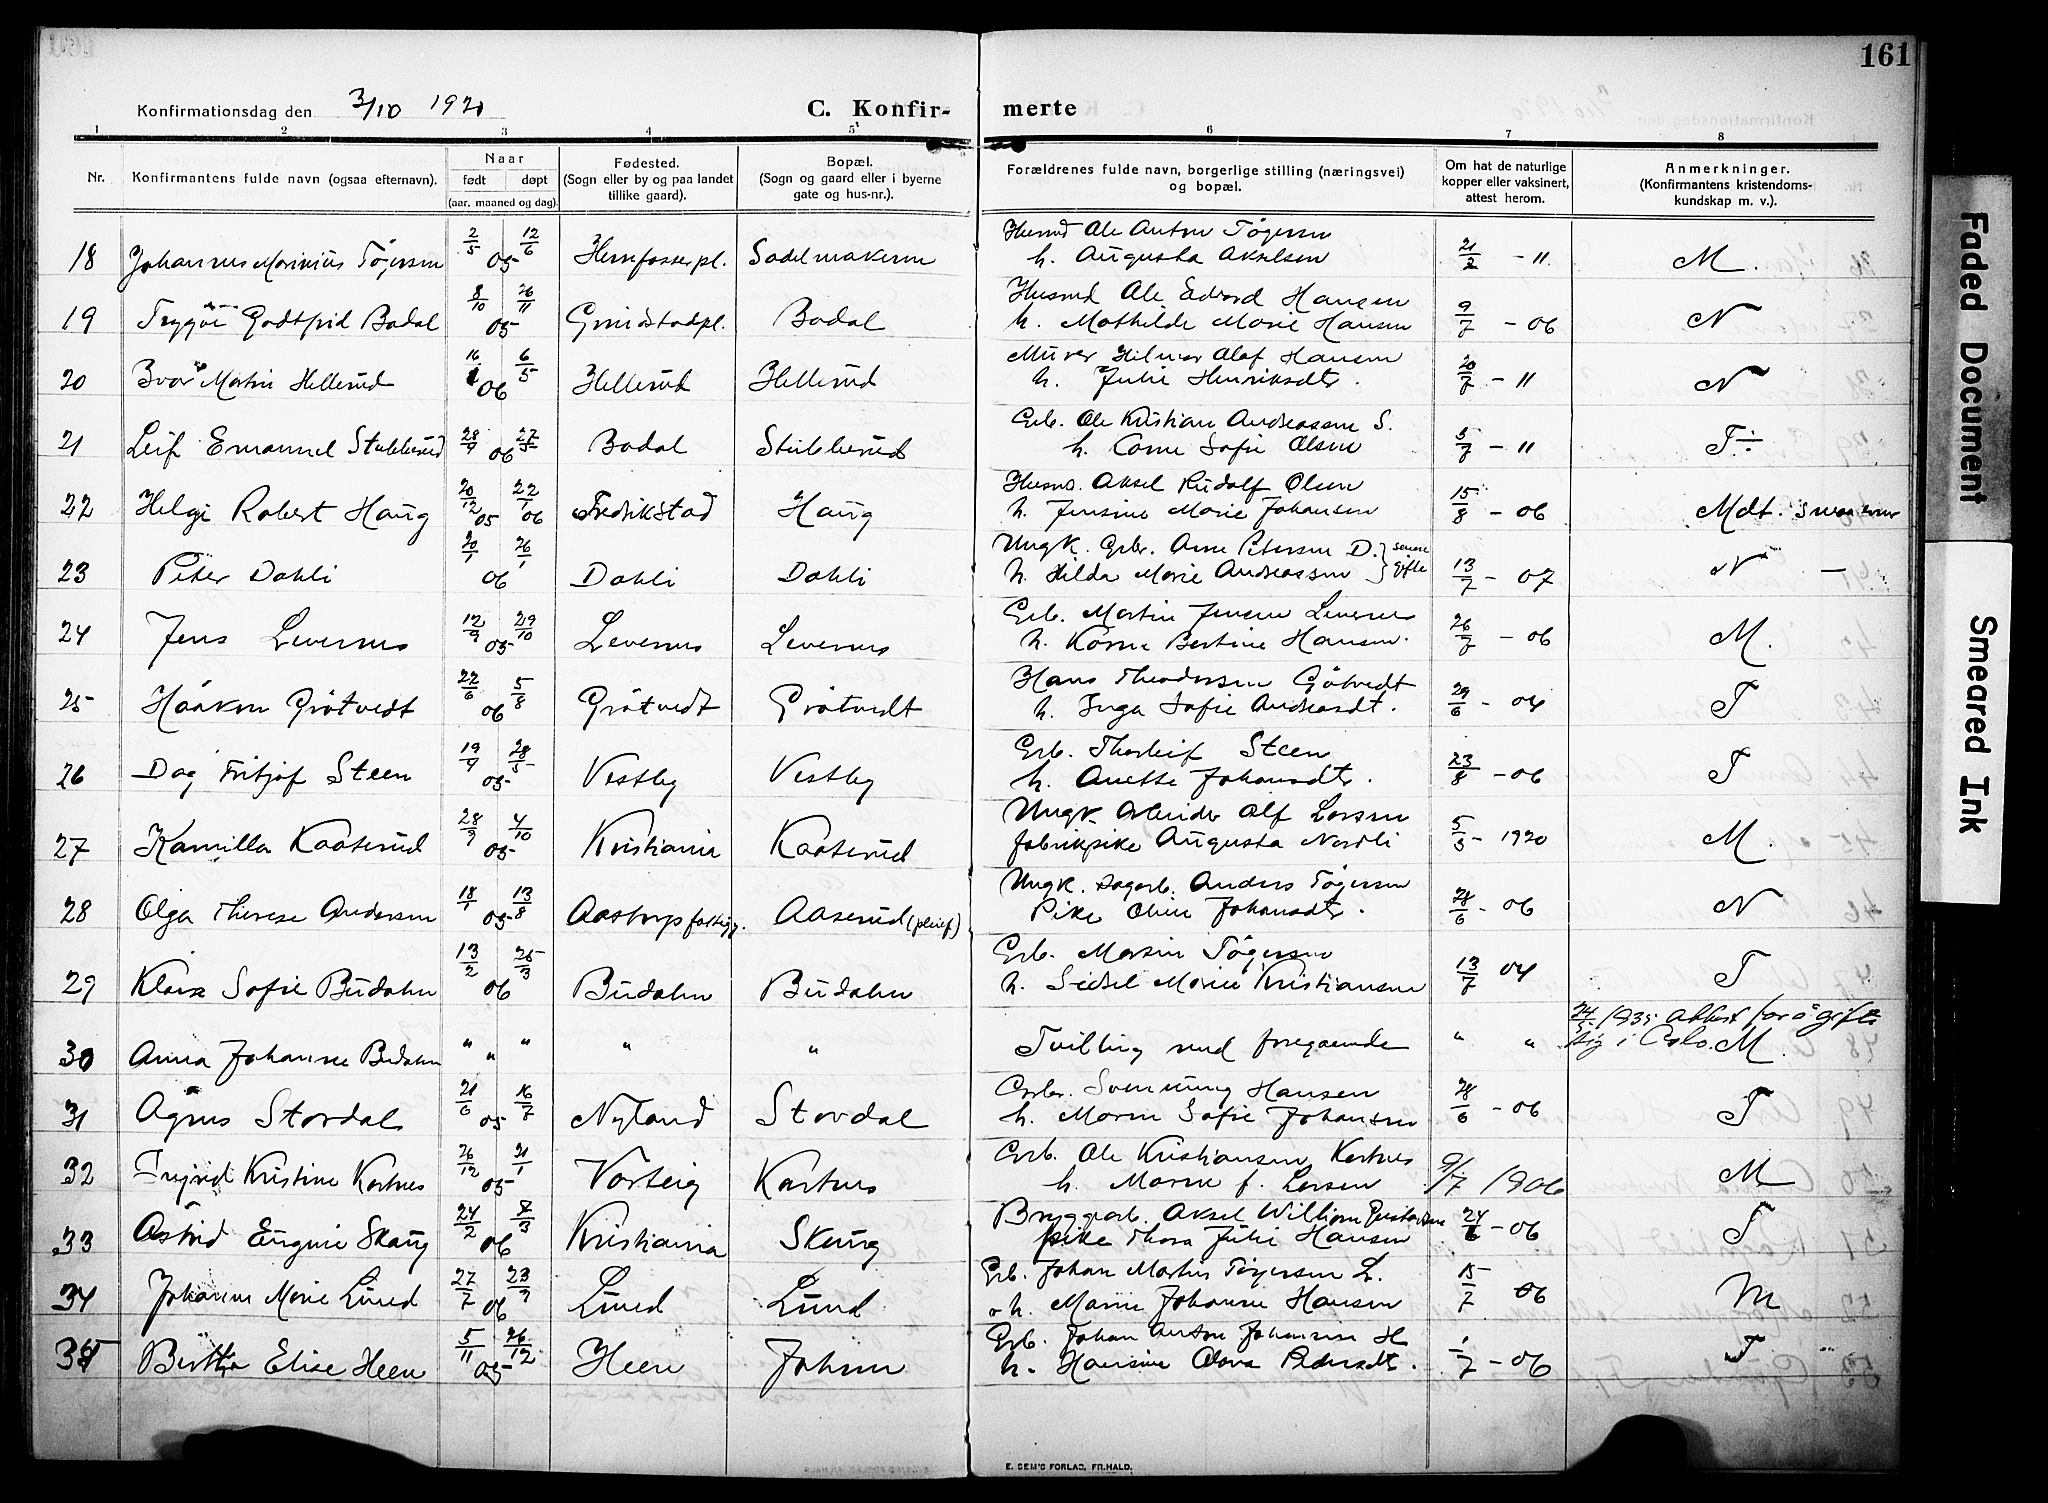 161
Konfirmationsdag den 3/10 1920
C. Konfirmerte
1 2 3 4 5 6 7 8
Nr. Konfirmantens fulde navn (ogsaa efternavn). Naar født døpt (aar, maaned og dag). Fødested. (Sogn eller by og paa landet tillike gaard). Bopæl. (Sogn og gaard eller i byerne gate og hus-nr.). Forældrenes fulde navn, borgerlige stilling (næringsvei) og bopæl. Om hat de naturlige kopper eller vaksinert, attest herom. Anmerkninger. (Konfirmantens kristendomskundskap m. v.).
18 Johannes Marinius Tøgersen 2/5 05 12/6 Sadelmakeren Ole Anton Tøgersen
h. Augusta Akselsen 21/2 - " M.
19 Trygve Godtfrid Bodal 8/10 05 26/11 Grimstadpl. Bodal Husmd Ole Edvard Hansen
h. Mathilde Marie Hansen 9/7 - 06 N
20 Ivar Martin Hellerud 06 6/5 Hellerud Hellerud Murer Hilmar Olaf Hansen
h. Julie Henriksdtr. 20/7 - " N
21 Leif Emanuel Stubberud 06 Bodal Stubberud Ole Kristian Andreassen S.
h. Sofie Olsen 5/7 - " T÷
22 Helge Robert Haug 20/12 05 22/1 06 Fredrikstad Haug Aksel Rudolf Olsen
h. Jensine Marie Johansen 15/8 - 06 Mdt.
23 Peter Dahli 20/1 06 Dahli Dahli Ungk. Arne Petersen D. } senere
h. Hilda Marie Andreassen } gifte 13/7 - 07 N -
24 Jens Levernes 12/9 05 29/10 Levernes Levernes Martin Jensen Levernes
h. Karen Bertine Hansen. 26/7 - 06 M.
25 Haakon Grötvedt 22/6 06 5/8 Grötvedt Grötvedt Hans Theodorsen Götvedt
h. Inga Sofie Andreasdt. 29/6 - 04 T
26 Dag Fritjof Steen 05 Vestby Vestby Thorleif Steen
h. Anette Johansdtr. 23/8 - 06 T
27 Kamilla Kaaterud 28/9 05 4/10 Kristiania Kaaterud Ungk. Arbeider Alf Larsen
fabrikpike Augusta Nordli 5/3 - 1920 M.
28 Olga Therese Andersen 18/1 05 13/8 Aaserud (pleief) Ungk. sagarb. Anders Tøgersen
Pike Oline Johansdtr. 28/6 - 06 N
29 Klara Sofie Budalen 13/2 06 25/3 Budalen Budalen Martin Tøgersen
h. Sidsel Marie Kristiansen 13/7 04 T
30 Anna Johanne Budalen " " " " " Tvilling med foregaaende " " 24/5 1935 attest for å gifte
sig i Oslo. M.
31 Agnes Stordal 21/6 05 16/7 Nyland Stordal Svenning Hansen
h. Maren Sofie Johansen 28/6 - 06 T
32 Ingrid Kristine Kartnes 26/12 05 21/1 Varteig Kartnes Ole Kristiansen Kartnes
h. Maren f. Larsen 9/7 1906 M
33 Astrid Eugenie Skaug 24/2 06 Kristiania Skaug Bryggearb. Aksel William Gustavsen
pike Thora Julie Hansen 24/6 - 06 T
34 Johanne Marie Lund 27/7 06 23/9 Lund Lund Johan Martin Tøgersen L.
o h. Marie Johanne Hansen 15/7 06 M
35 Bertha Elise Heen 5/11 05 26/12 Heen Johan Anton Johansen H
h. Hansine Olava Pedersdt. 1/7 - 06 T
E. SEM'S FORLAG, FR.HALD.
Faded Document
Smeared Ink